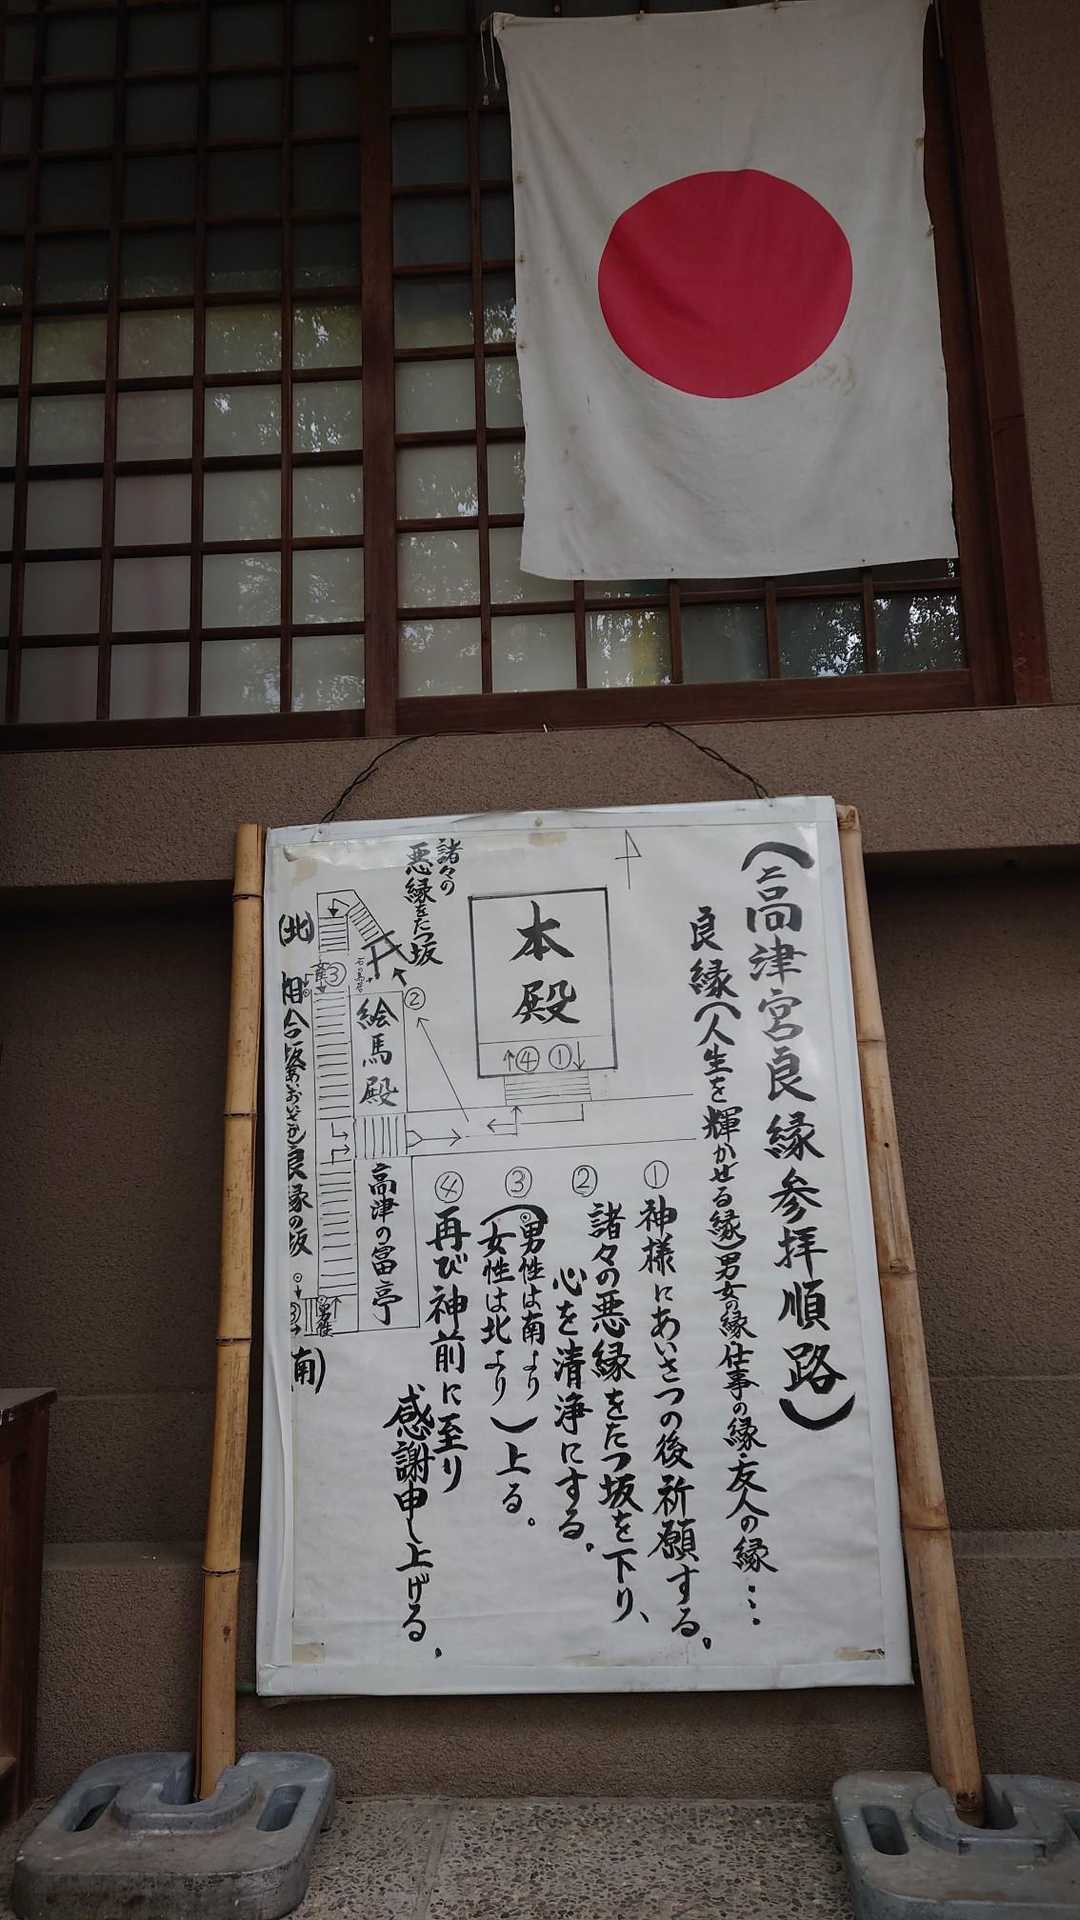 （高津宮良縁参拝順路）
良縁（人生を輝かせる縁）男女の縁・仕事の縁・友人の縁…
① 神様にあいさつの後祈願する。
② 諸々の悪縁をたつ坂を下り、
心を清浄にする。
③ （男性は南より
女性は北より）上る。
④ 再び神前に至り
感謝申し上げる。
本殿
④ ①
諸々の
悪縁をたつ坂
②
絵馬殿
高津の富亭
（北）
③
相合坂
良縁の坂
男性
（南）